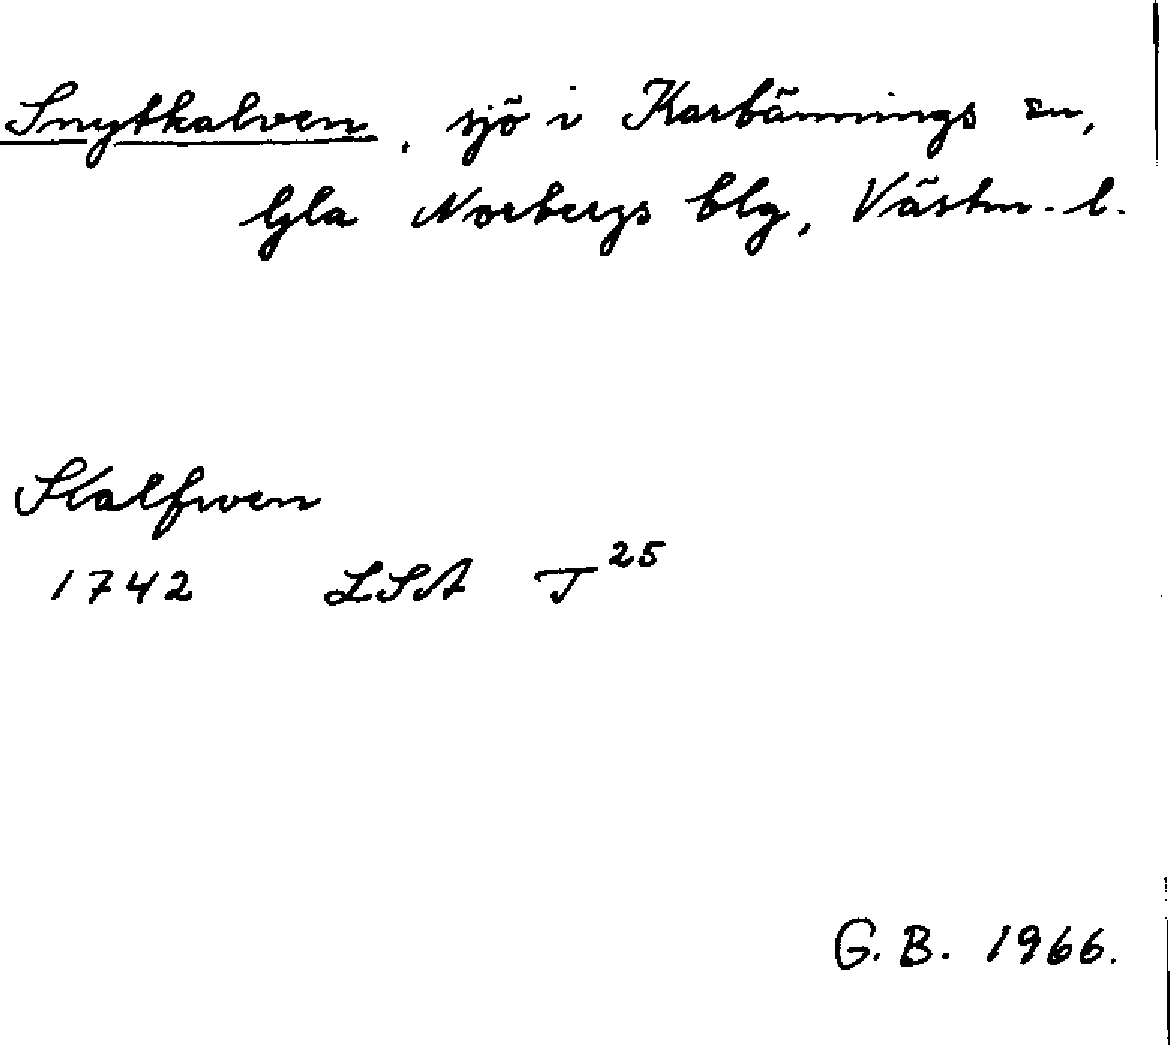 Snytkalven, sjö i Karbännings sn,
Gla Norbergs blg, Västm. l.
Kalfwen
1742 LSA T 25
G. B. 1966.